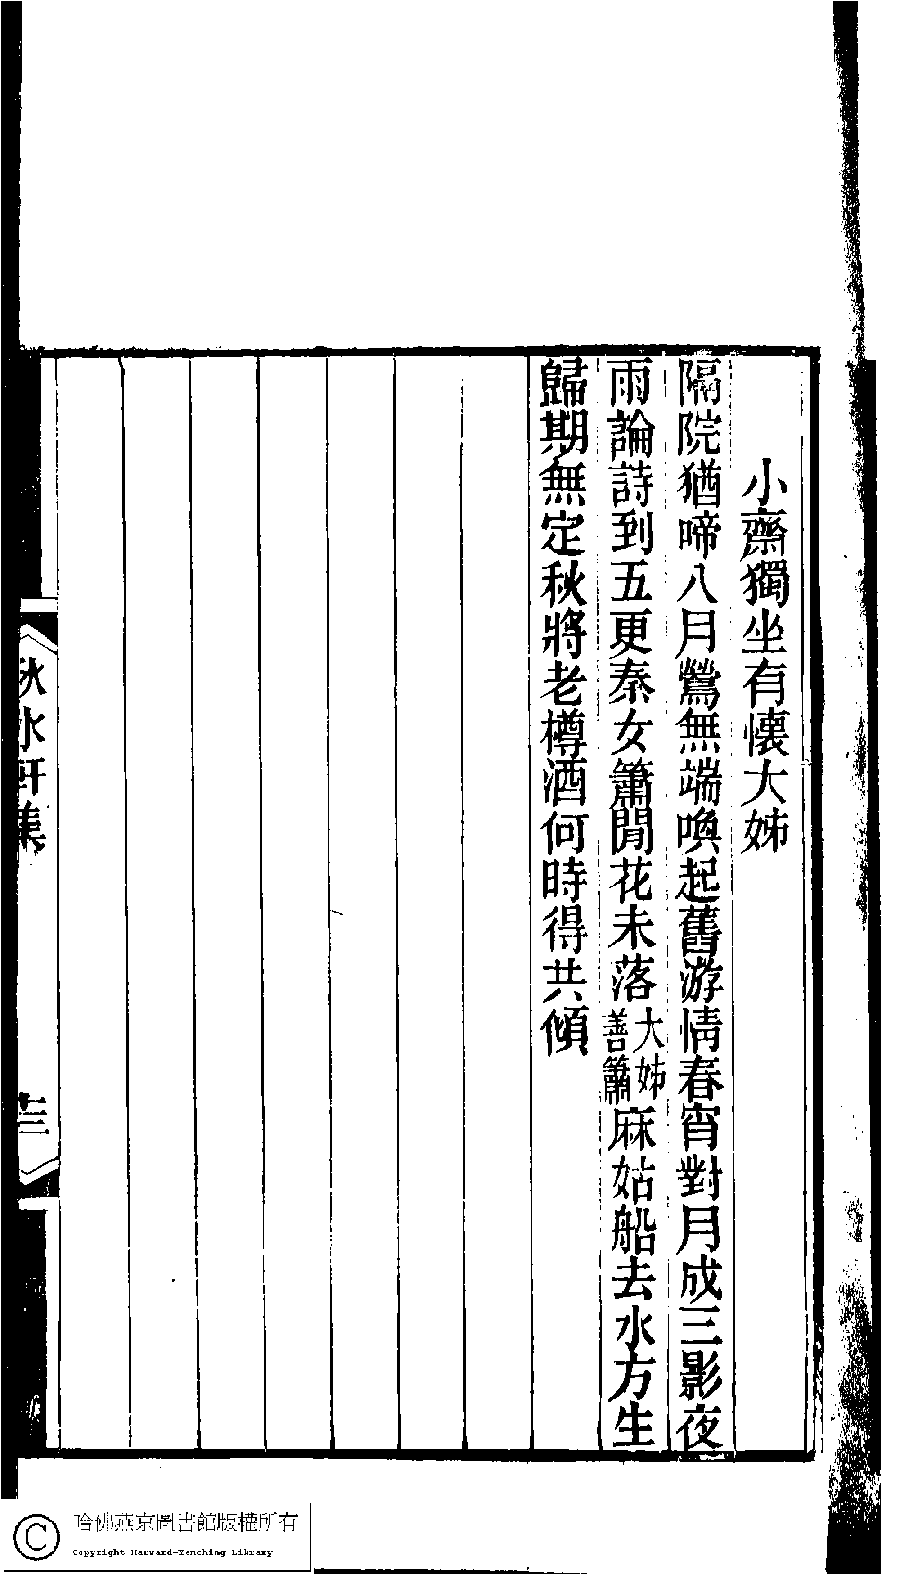 小齋獨坐有懐大姊
隔院猶啼八月鶯無端喚起舊游情春宵對月成三影夜
雨論詩到五更秦女簫閒花未落大姊善簫麻姑船去水方生
歸期無定秋將老樽酒何時得共傾
秋水軒集
十三
哈佛燕京圖書館版權所有
Copyright Harvard-Yenching Library